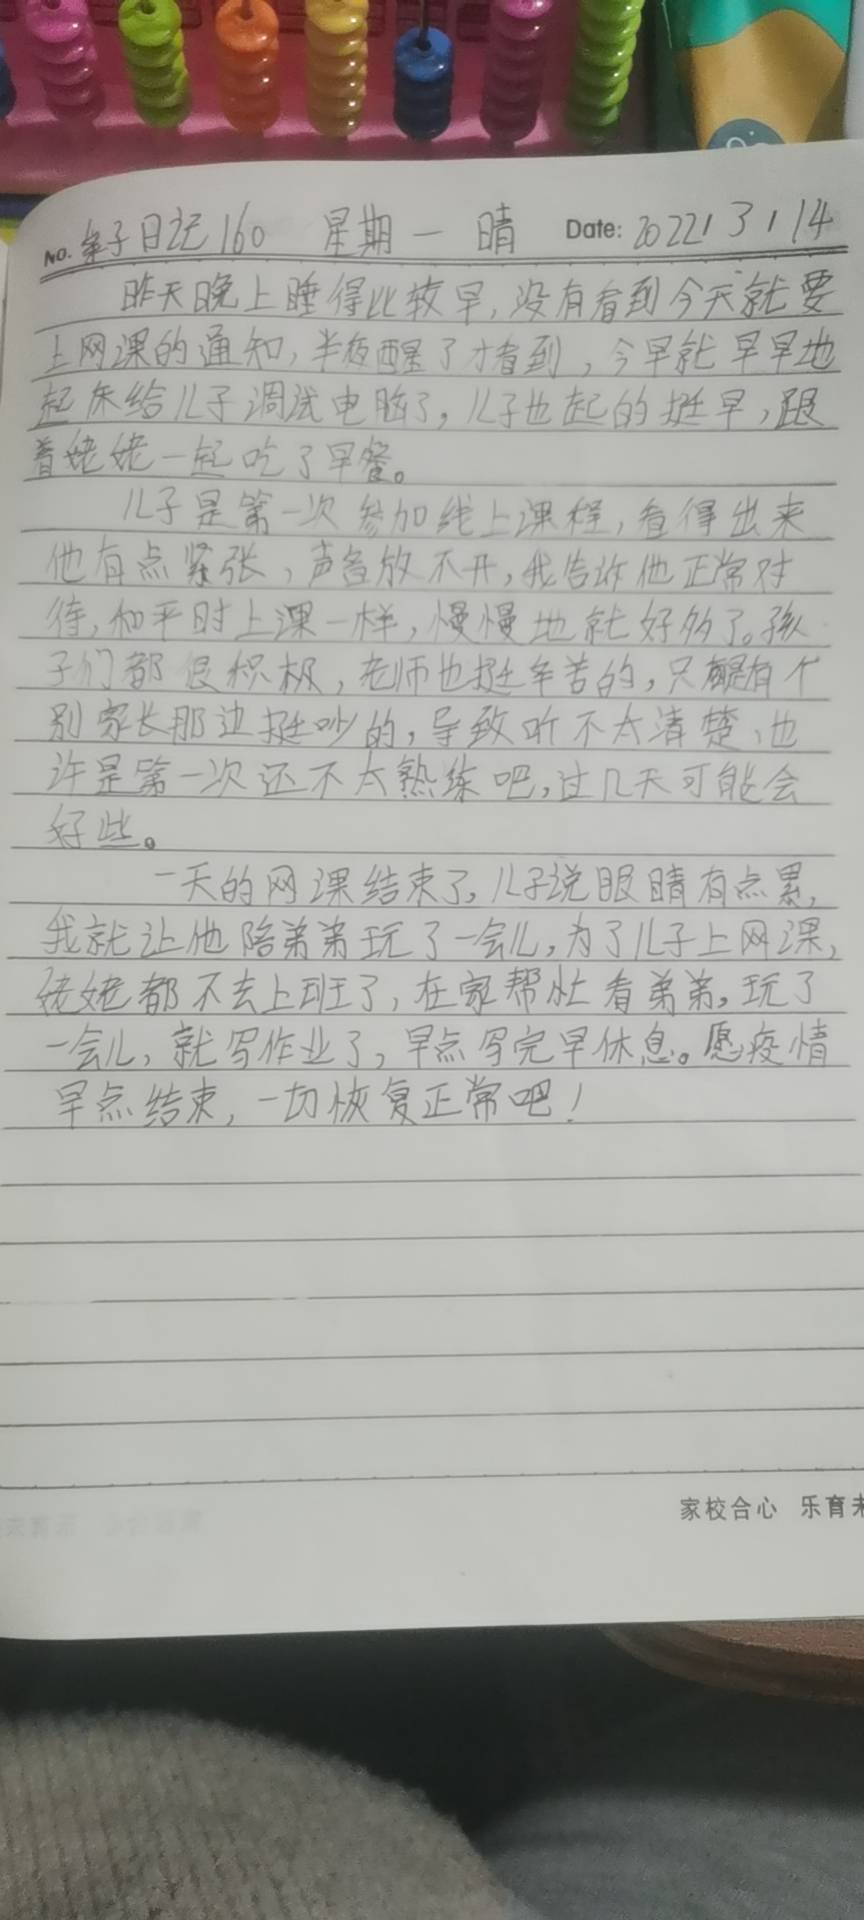 No. 亲子日记160 星期一 晴 Date: 2022/3/14
昨天晚上睡得比较早,没有看到今天就要
上网课的通知,半夜醒了才看到,今早就早早地
起床给儿子调试电脑了,儿子也起的挺早,跟
着姥姥一起吃了早餐。
儿子是第一次参加线上课程,看得出来
他有点紧张,声音放不开,我告诉他正常对
待,和平时上课一样,慢慢地就好多了。孩
子们都很积极,老师也挺辛苦的,只是有个
别家长那边挺吵的,导致听不太清楚,也
许是第一次还不太熟练吧,过几天可能会
好些。
一天的网课结束了,儿子说眼睛有点累,
我就让他陪弟弟玩了一会儿,为了儿子上网课,
姥姥都不去上班了,在家帮忙看弟弟,玩了
一会儿,就写作业了,早点写完早休息。愿疫情
早点结束,一切恢复正常吧!
家校合心 乐育未